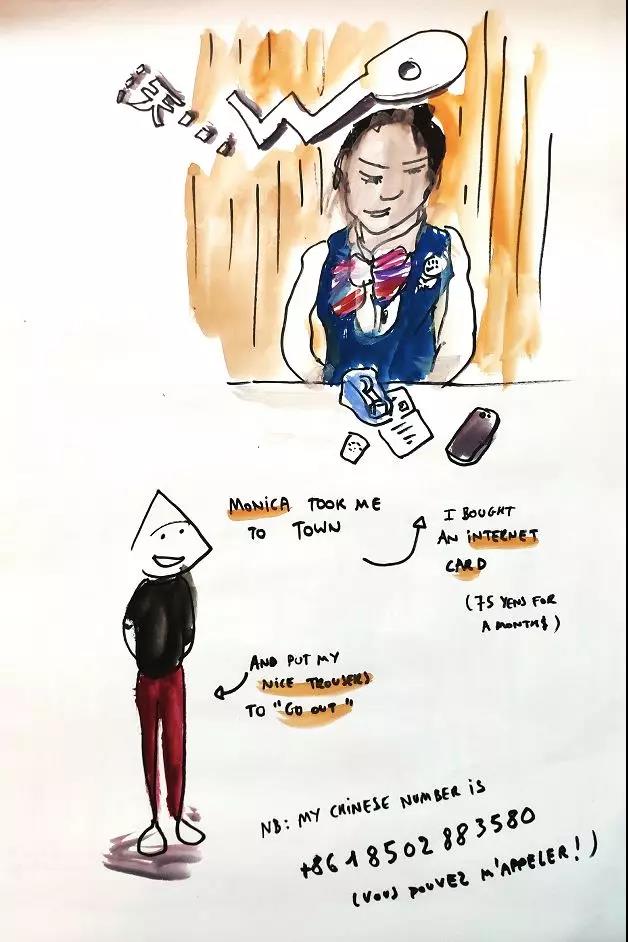 MONICA TOOK ME
TO TOWN
I BOUGHT
AN INTERNET
CARD
(75 YENS FOR
A MONTH)
AND PUT MY
NICE TROUSERS
TO "GO OUT"
NB: MY CHINESE NUMBER IS
+86 18502883580
(VOUS POUVEZ M'APPELER!)